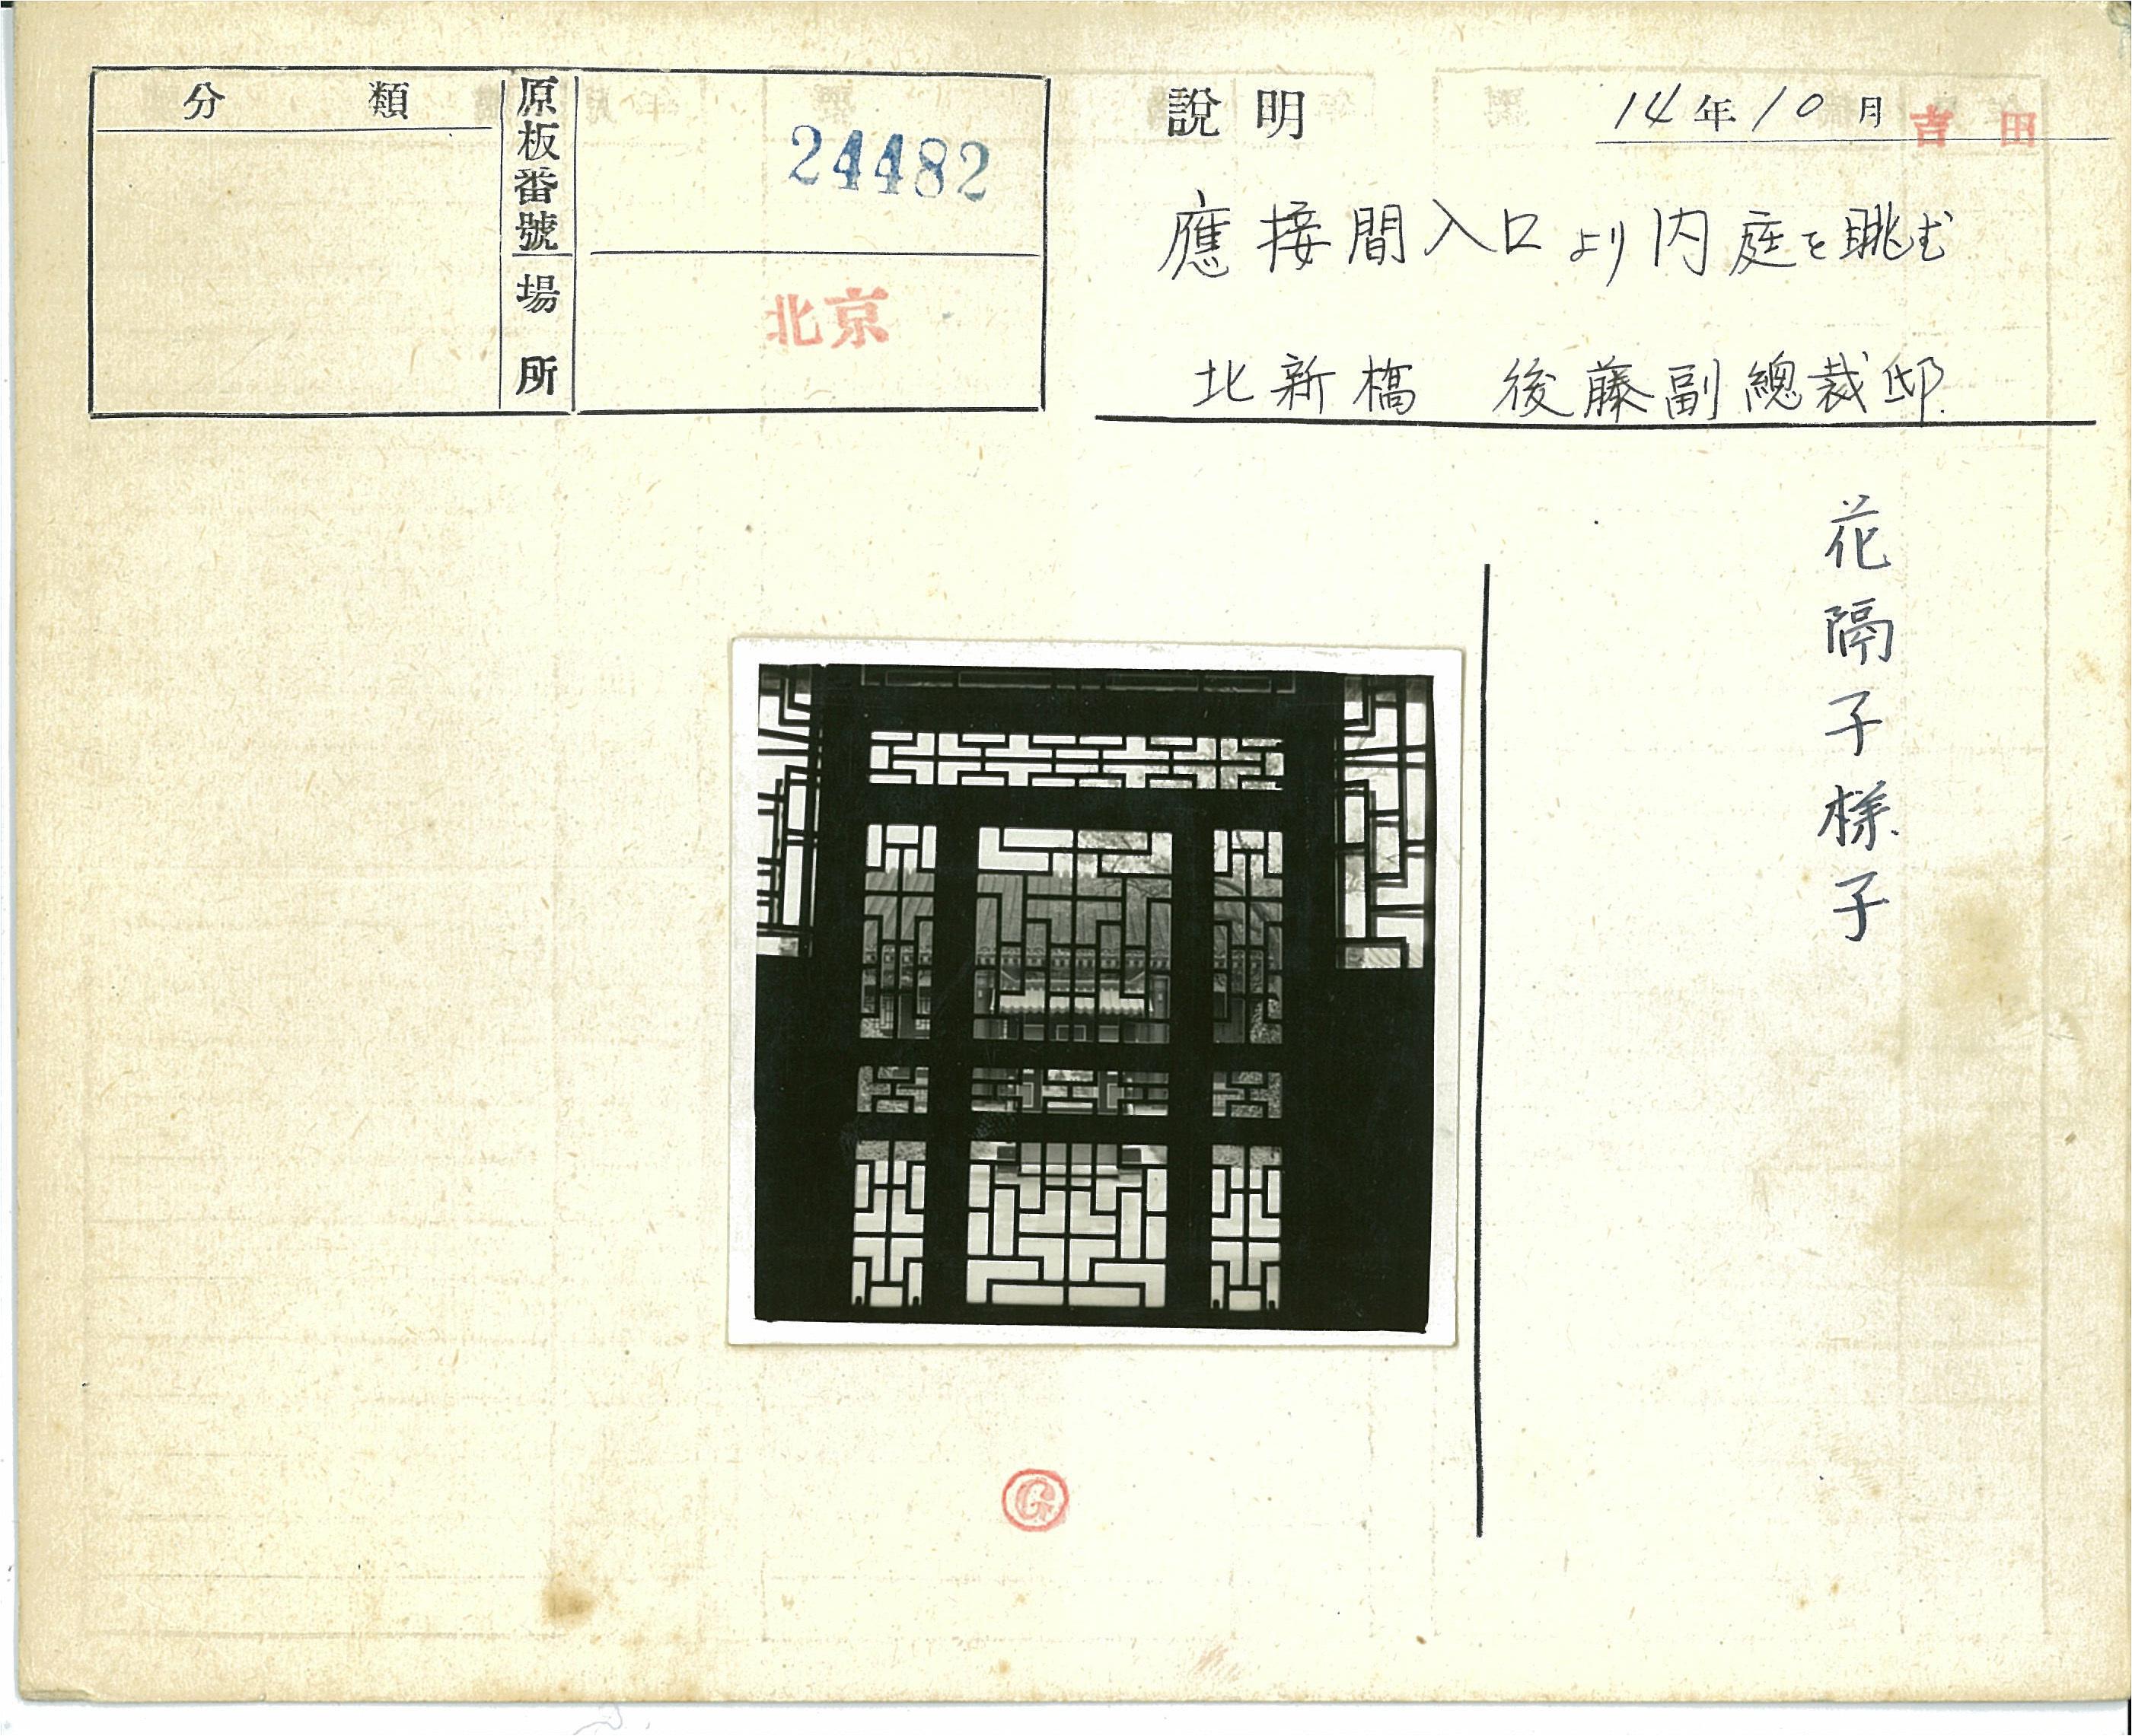 分類
原板番號
24482
場所
北京
說明
14年10月 吉田
應接間入口より内庭を眺む
北新橋 後藤副總裁邸.
花隔子様子
G